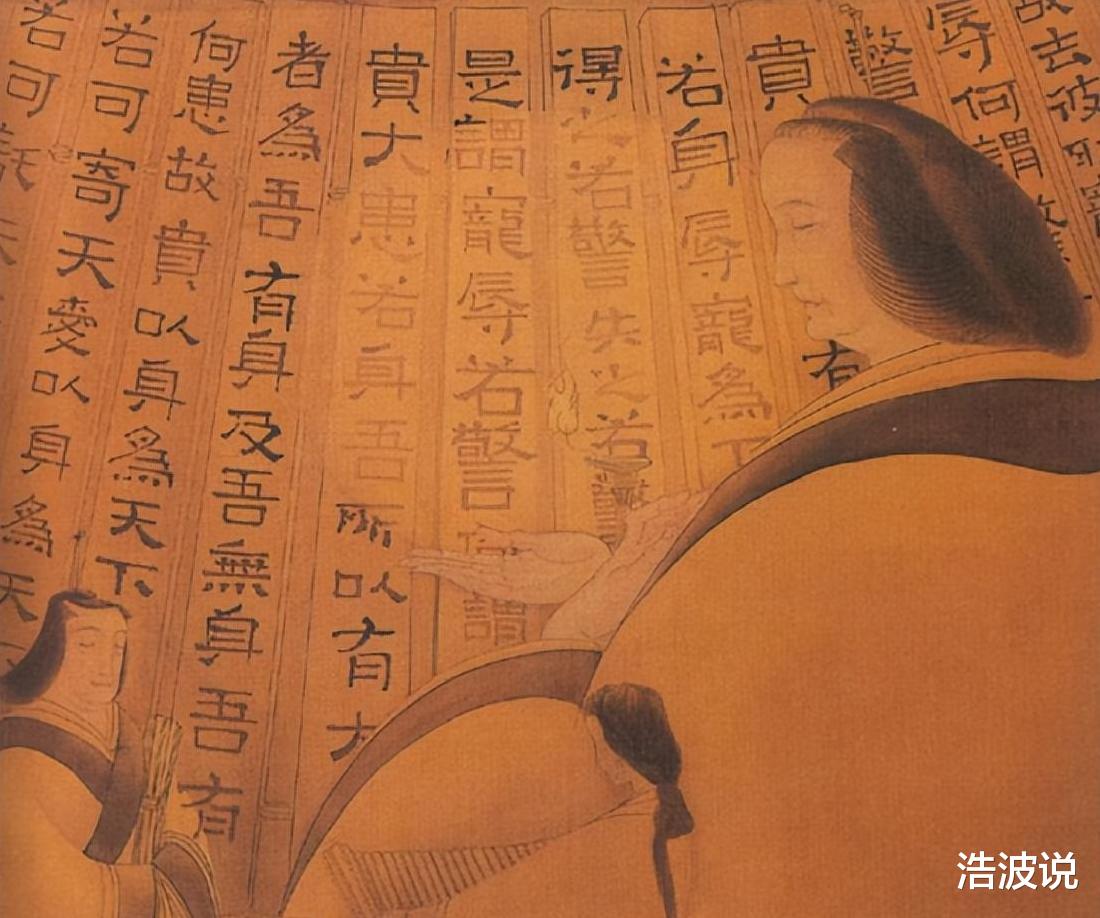 故去彼取寵
辱何謂
驚
貴有
若身辱寵為下
得之若驚失之若驚
是謂寵辱若驚何謂
貴大患若身吾所以有大
者為吾有身及吾無身吾有
何患故貴以身為天下
若可寄天愛以身為天
若可託天
浩波说